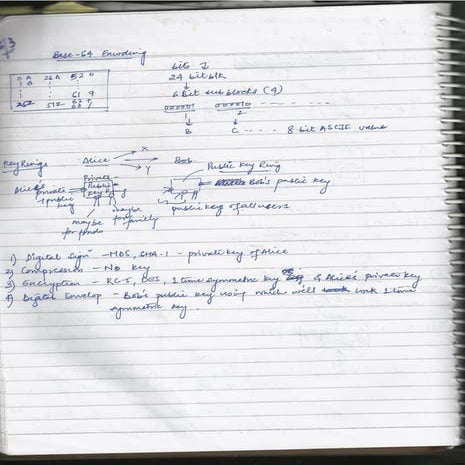 Base-64 Encoding
bits ↓
24 bit blk
6 bit sub blocks (4)
0 A 26 A 52 0
1 B
: : 61 9
25 Z 51 Z 62 +
63 /
000001 000010 - - - - - -
1 2
B C .... 8 bit ASCII value
Key Rings Alice X Y Bob
Public Key Ring
Alice's private + public key
Private Public key Ring
Bob's public key
public key of all users
maybe for frnds
maybe for family
1) Digital Sign" - MD5, SHA-1 - private key of Alice
2) Compression - No key
3) Encryption - RC-5, DES, 1 time symmetric key & Alice's private key
4) Digital Envelop - Bob's public key using which we'll lock 1 time
symmetric key.